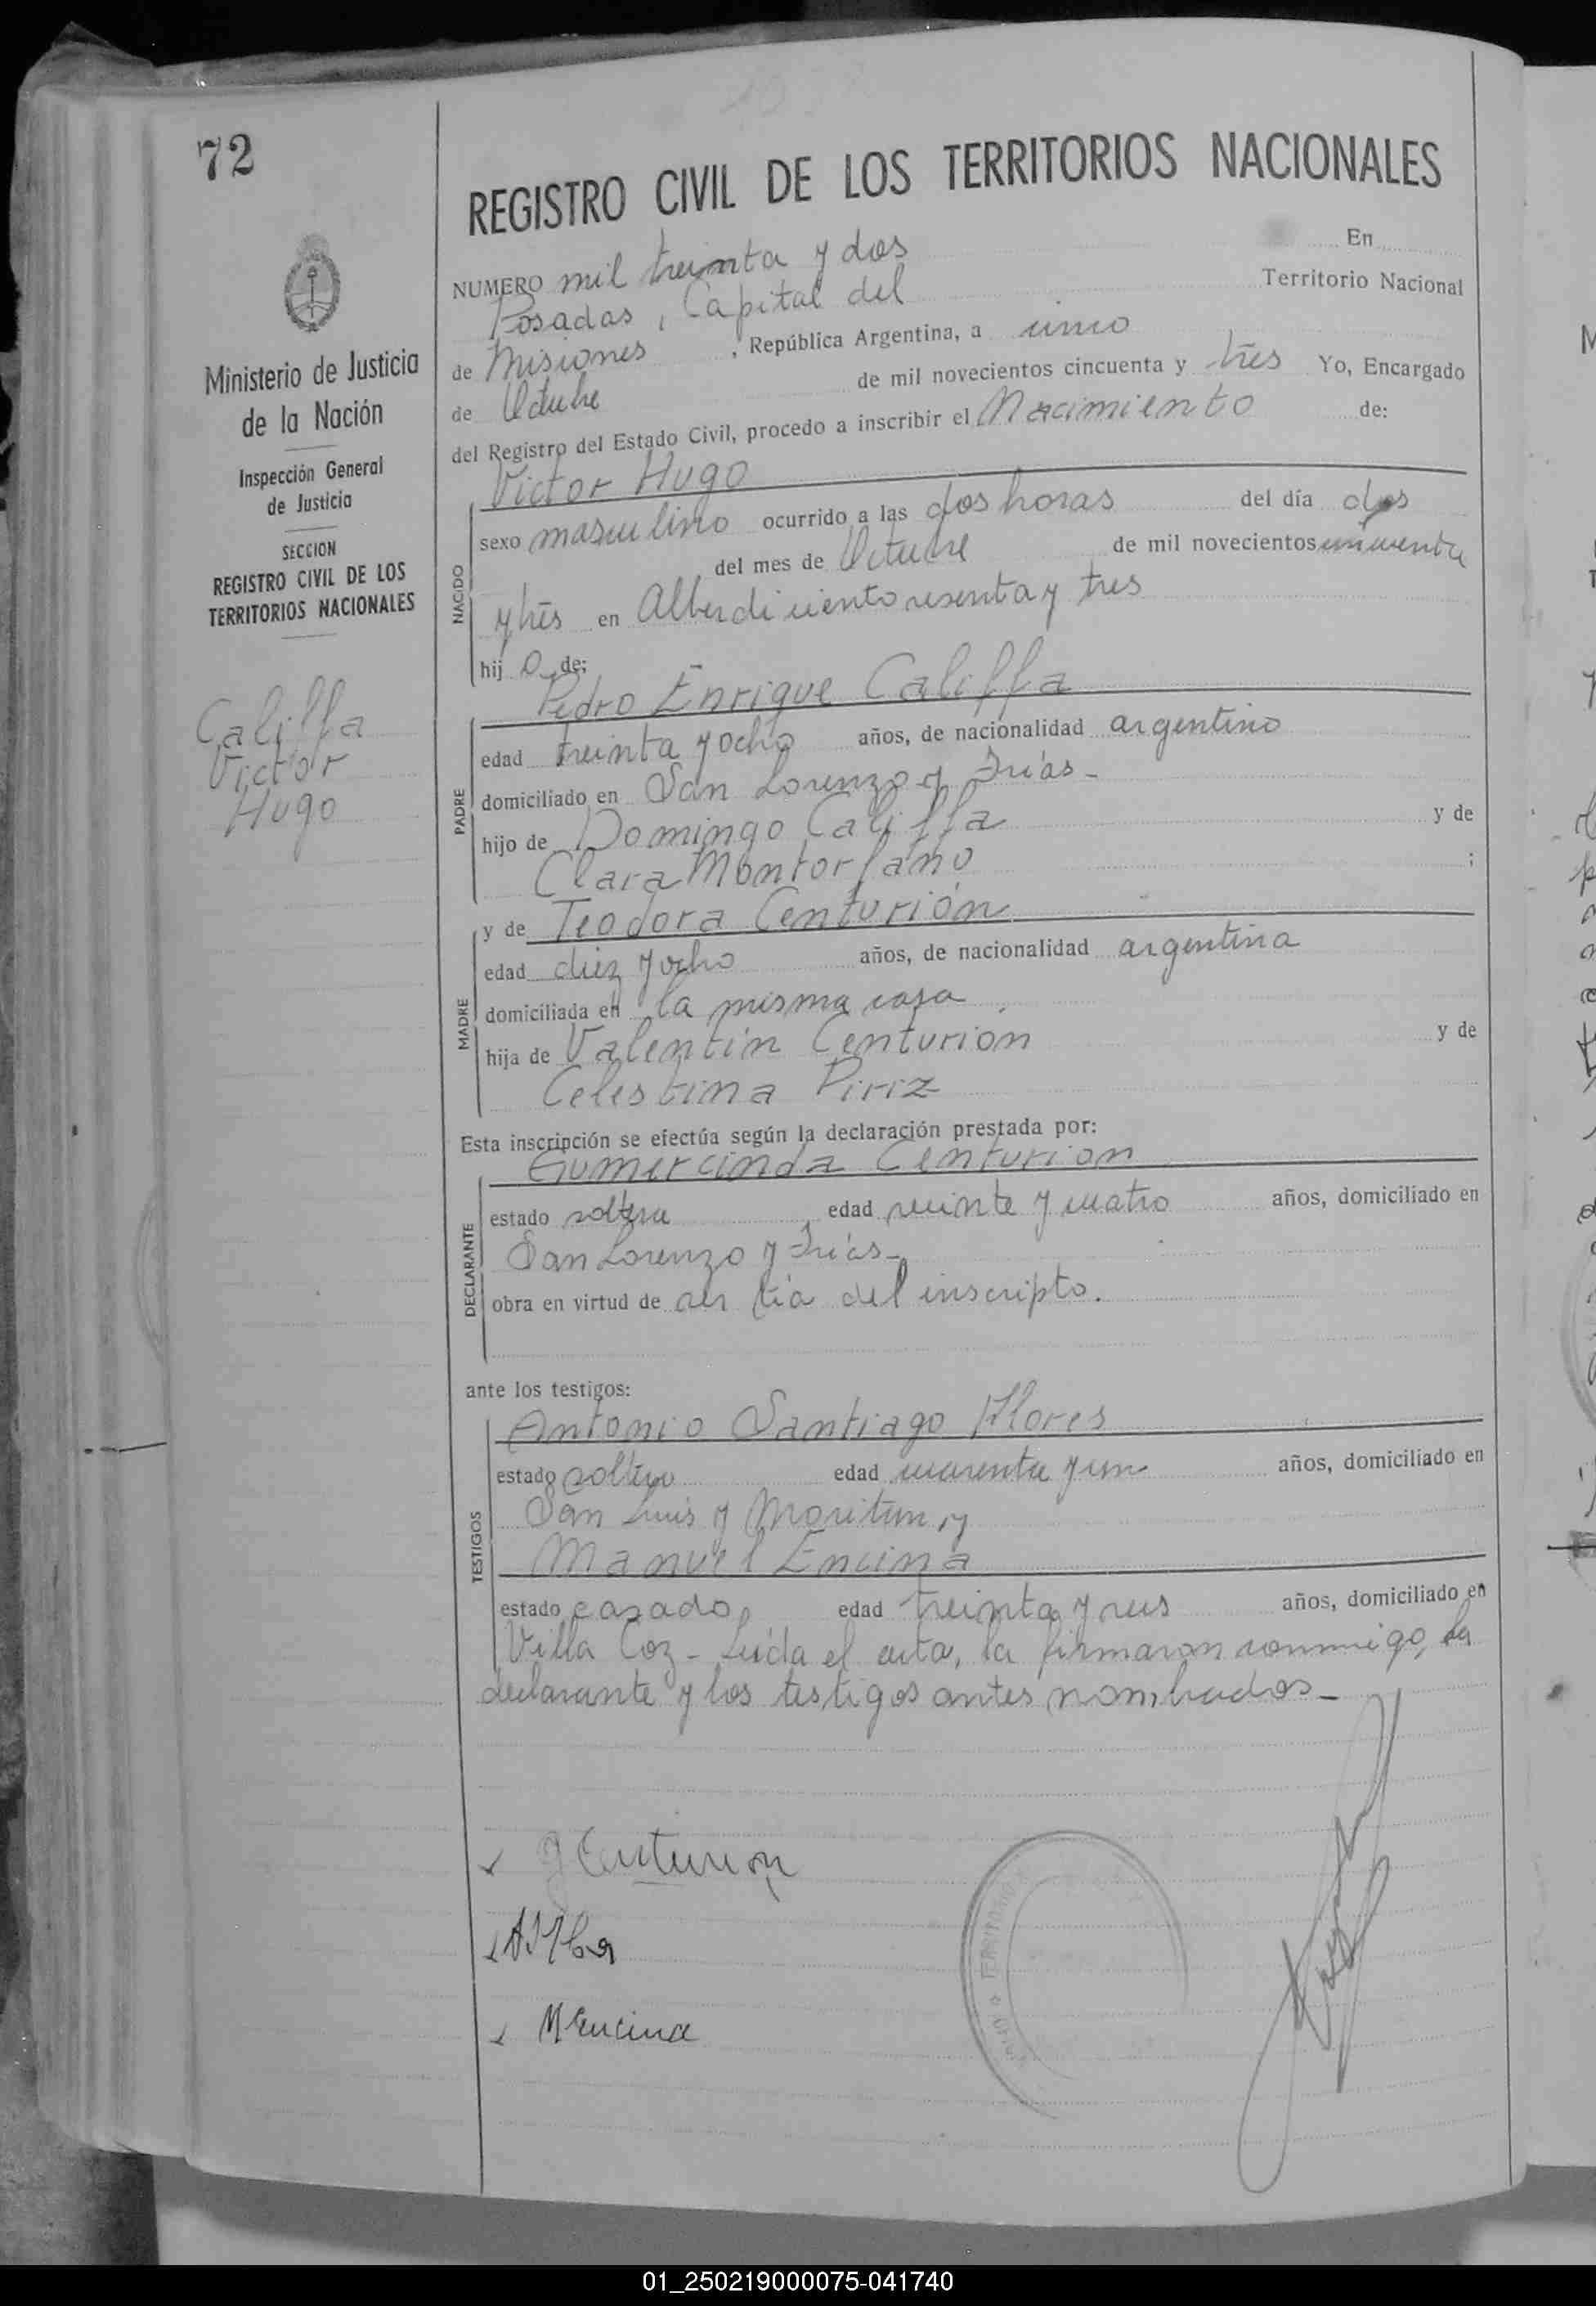 72
Ministerio de Justicia
de la Nación
Inspección General
de Justicia
SECCION
REGISTRO CIVIL DE LOS
TERRITORIOS NACIONALES
Califfa
Victor
Hugo
REGISTRO CIVIL DE LOS TERRITORIOS NACIONALES
NUMERO mil treinta y dos En
Posadas, Capital del Territorio Nacional
de Misiones, República Argentina, a cinco
de Octubre de mil novecientos cincuenta y tres Yo, Encargado
del Registro del Estado Civil, procedo a inscribir el Nacimiento de:
Victor Hugo
NACIDO
sexo masculino ocurrido a las dos horas del día dos
del mes de Octubre de mil novecientos cincuenta
y tres en Alberdi ciento sesenta y tres
hijo de:
Pedro Enrique Califfa
PADRE
edad treinta y ocho años, de nacionalidad argentino
domiciliado en San Lorenzo y Frías-
hijo de Domingo Califfa y de
Clara Montorfano ;
MADRE
y de Teodora Centurión
edad diez y ocho años, de nacionalidad argentina
domiciliada en la misma casa
hija de Valentín Centurión y de
Celestina Piriz
Esta inscripción se efectúa según la declaración prestada por:
Gumercinda Centurion
DECLARANTE
estado soltera, edad veinte y cuatro años, domiciliado en
San Lorenzo y Frías-
obra en virtud de ser tía del inscripto.
ante los testigos:
Antonio Santiago Flores
TESTIGOS
estado soltero edad cuarenta y un años, domiciliado en
San Luis y y
Manuel Encina
estado casado, edad treinta y seis años, domiciliado en
Villa Coz - Leída el acta, la firmaron conmigo, la
declarante y los testigos antes nombrados-
G Centurion
M Encina
01_250219000075-041740